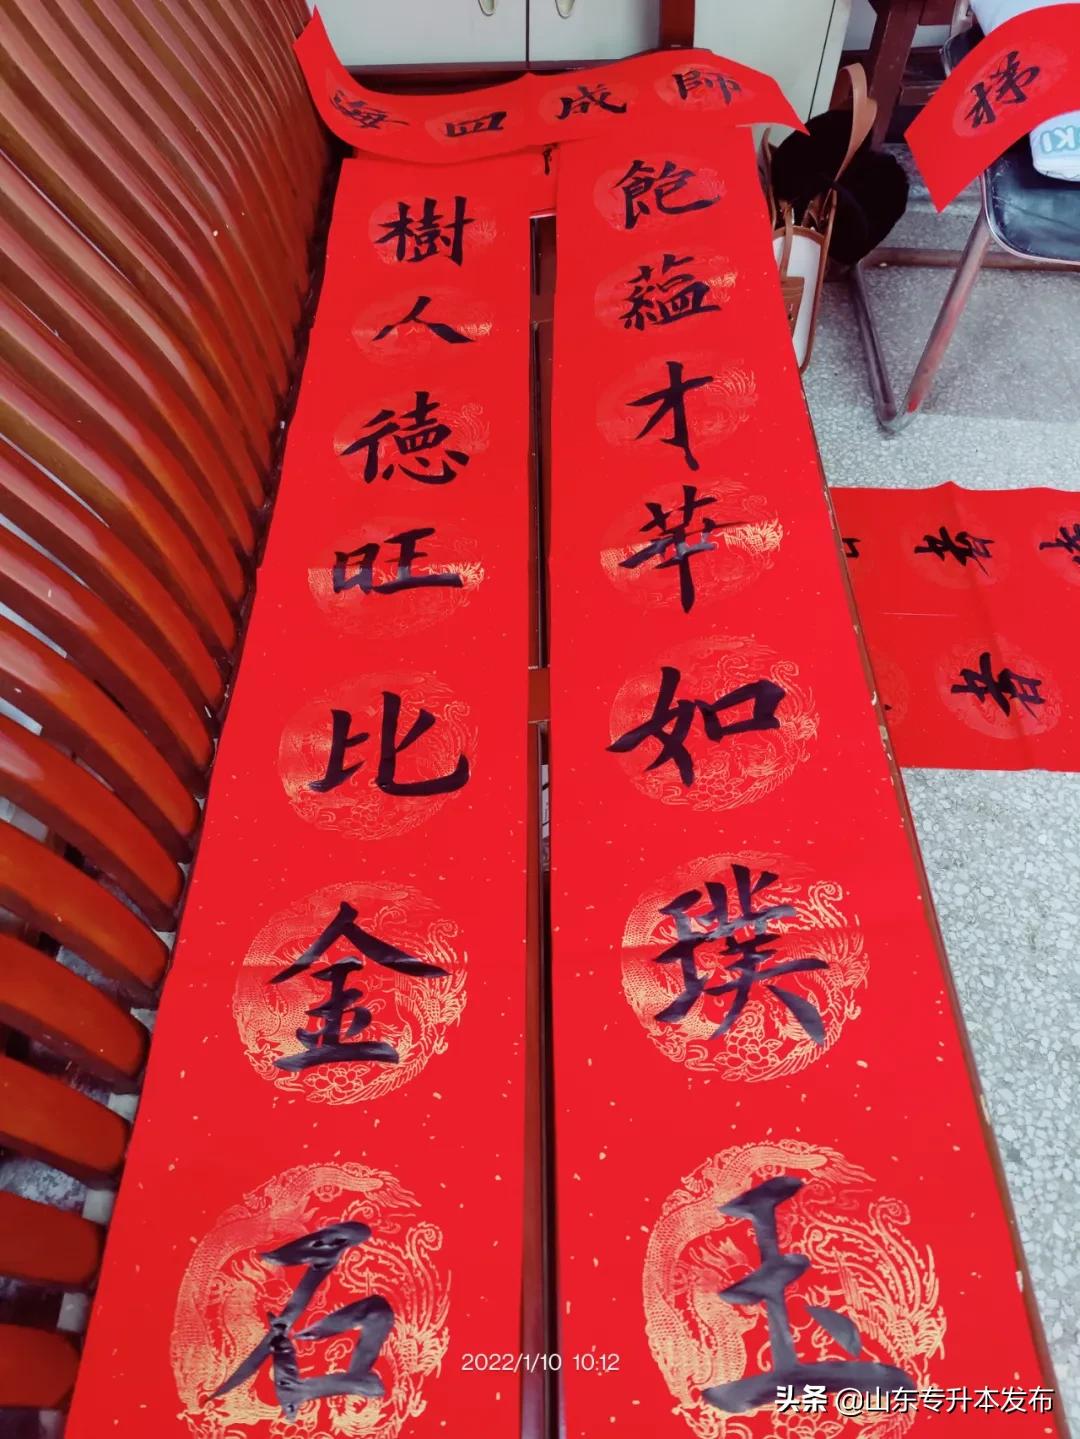 師成四海
飽蘊才華如璞玉
樹人德旺比金石
KI
2022/1/10 10:12
头条 @山东专升本发布